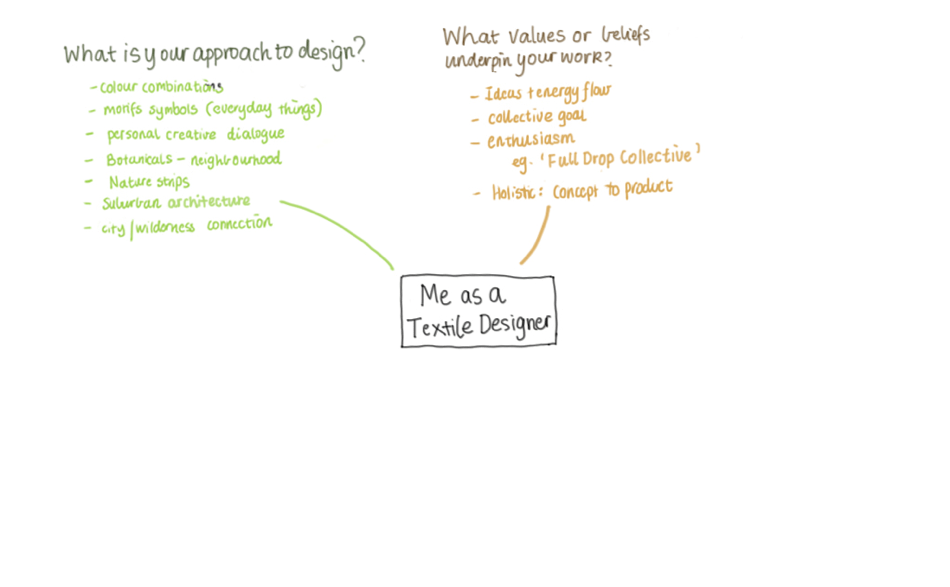 What is your approach to design?
- colour combinations
- motifs symbols (everyday things)
- personal creative dialogue
- Botanicals - neighbourhood
- Nature strips
- Suburban architecture
- city/wilderness connection
What values or beliefs
underpin your work?
- Ideas + energy flow
- collective goal
- enthusiasm
eg. 'Full Drop Collective'
- Holistic: Concept to product
Me as a
Textile Designer